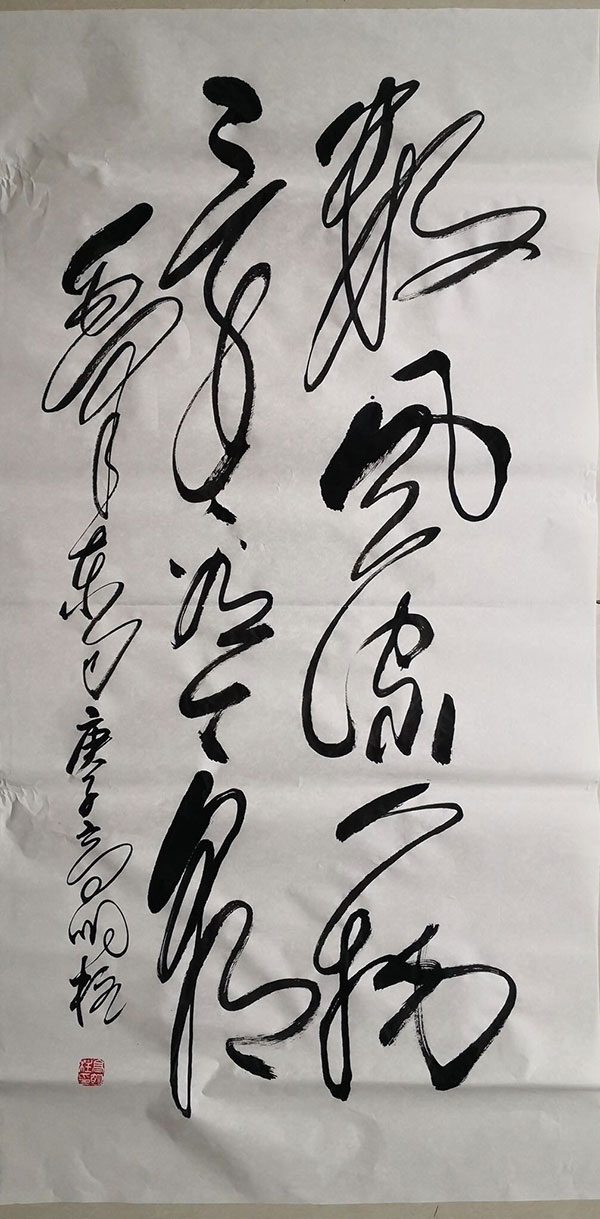 数风流人物
还看今朝
毛泽东句 庚子 高明柱